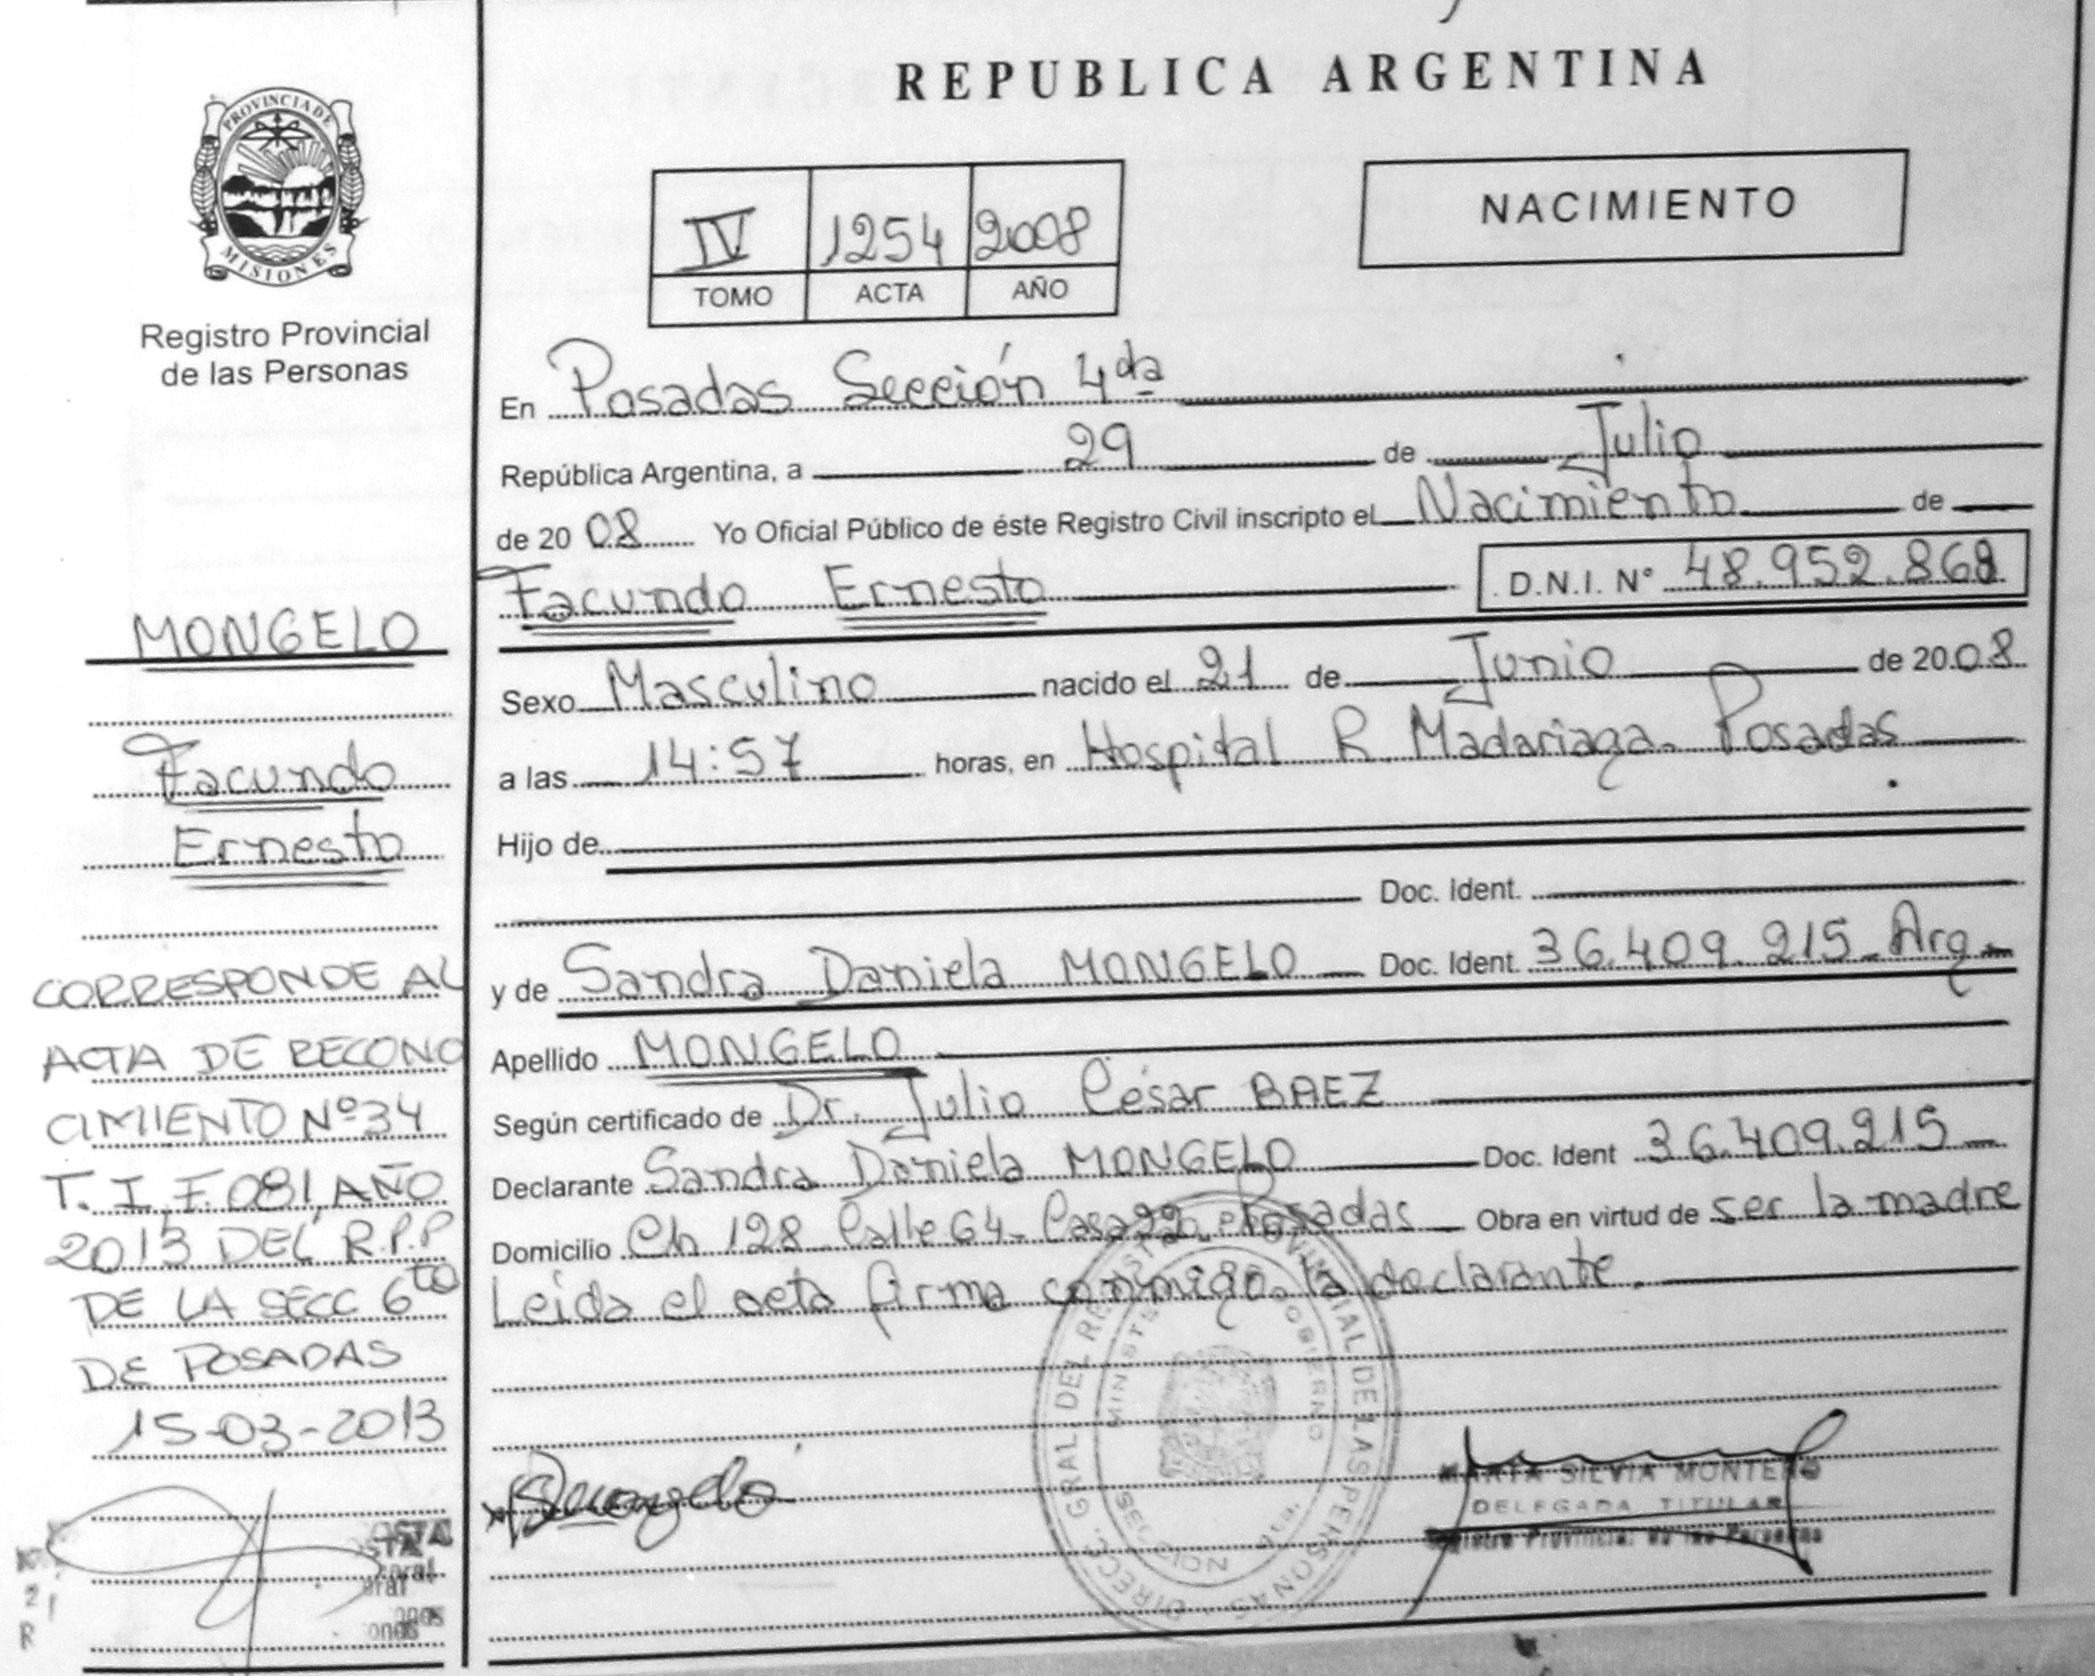 REPUBLICA ARGENTINA
PROVINCIA DE
MISIONES
Registro Provincial
de las Personas
IV 1254 2008
TOMO ACTA AÑO
NACIMIENTO
En Posadas Sección 4da
República Argentina, a 29 de Julio
de 2008 Yo Oficial Público de éste Registro Civil inscripto el Nacimiento de
Facundo Ernesto D.N.I. Nº 48.952.868
Sexo Masculino nacido el 21 de Junio de 2008
a las 14:57 horas, en Hospital R. Madariaga. Posadas.
Hijo de
Doc. Ident.
y de Sandra Daniela MONGELO Doc. Ident. 36.409.215 - Arg.
Apellido MONGELO
Según certificado de Dr. Julio César BAEZ
Declarante Sandra Daniela MONGELO Doc. Ident 36.409.215
Domicilio Ch 128 Calle 64 - Casa 22 Posadas Obra en virtud de ser la madre
Leida el acta firma conmigo la declarante.
MONGELO
Facundo
Ernesto
CORRESPONDE AL
ACTA DE RECONO
CIMIENTO Nº 34
T. I F. 081, AÑO
2013 DEL R.P.P
DE LA SECC 6to
DE POSADAS
15-03-2013
DIRECC. GRAL DEL REGISTRO PROVINCIAL DE LAS PERSONAS
MINISTERIO DE GOBIERNO
SECCION 4ta.
MARTA SILVIA MONTERO
DELEGADA TITULAR
Registro Provincial de las Personas